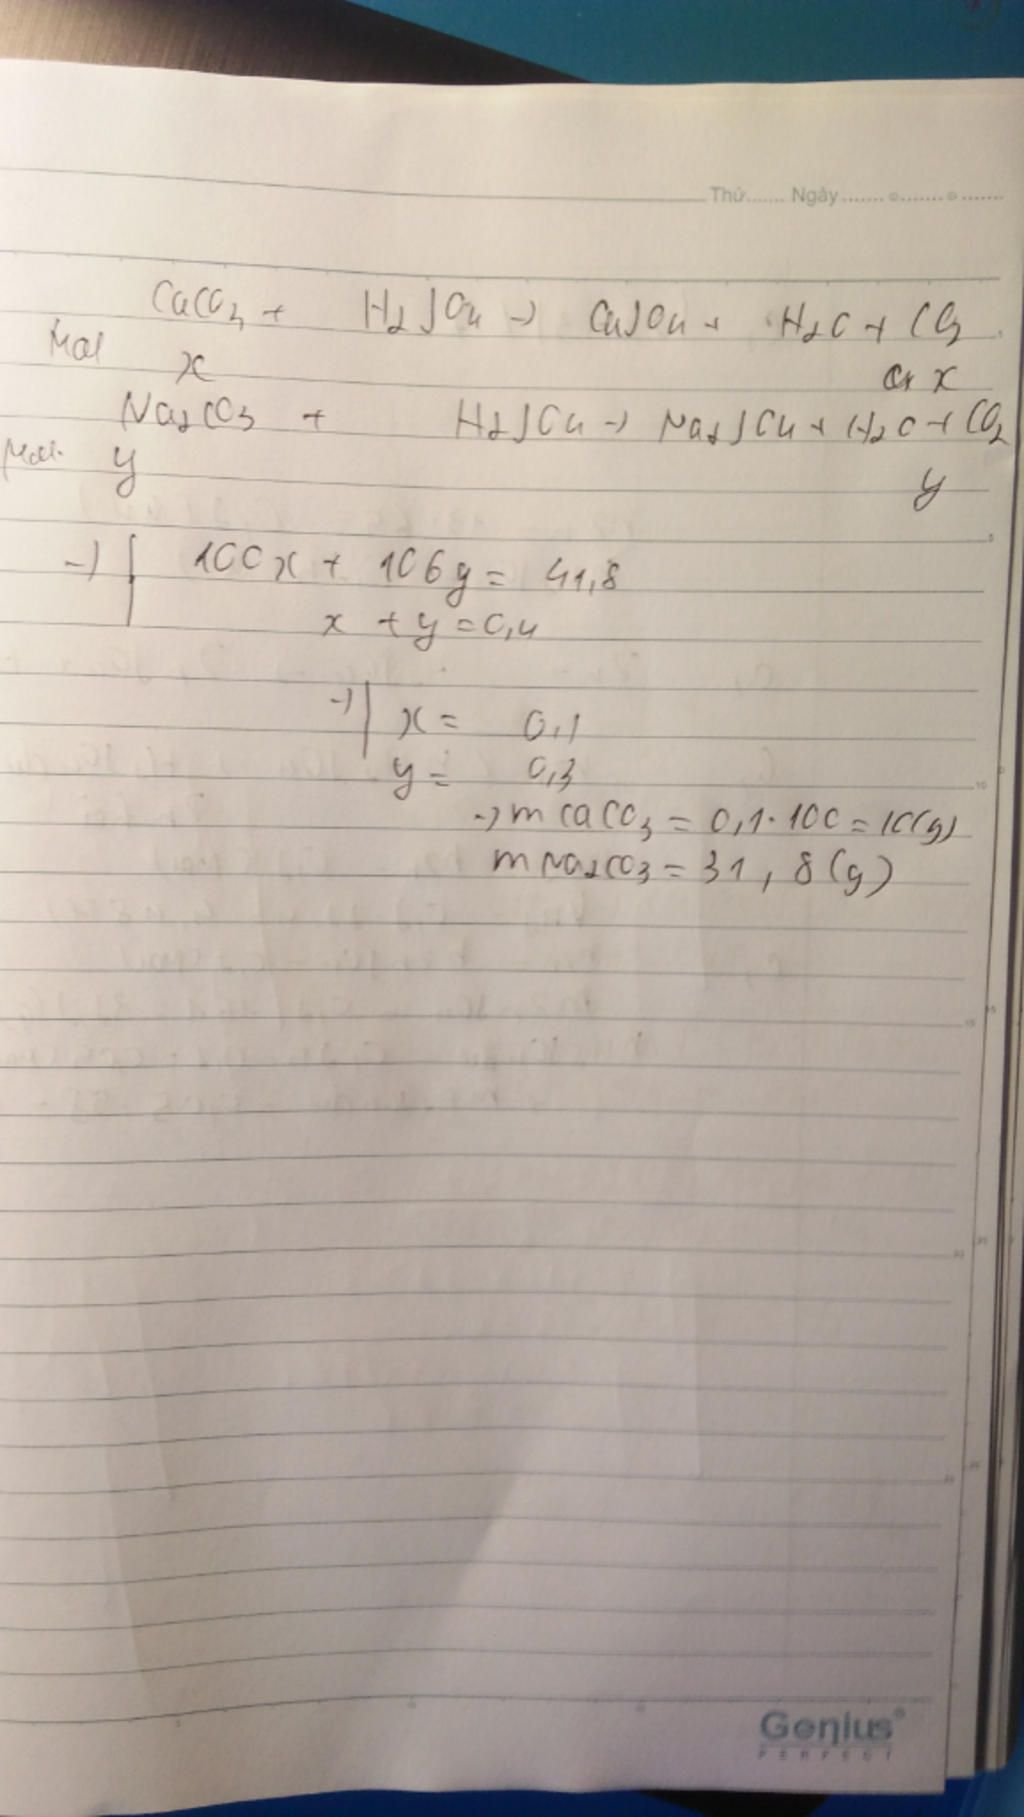 Thứ....... Ngày....... o....... o.......
CaCO3 + H2SO4 -> CaSO4 + H2O + CO2
Mol x x
Na2CO3 + H2SO4 -> Na2SO4 + H2O + CO2
Mol y y
-> { 100x + 106y = 41,8
x + y = 0,4
-> | x = 0,1
y = 0,3
-> mCaCO3 = 0,1.100 = 10(g)
mNa2CO3 = 31,8(g)
Genius®
PERFECT